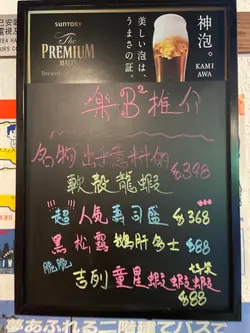 已安裝
電視及
SUNTORY
The
PREMIUM
MALT'S
美しい泡は、
うまさの証。
神泡。
KAMI
AWA
樂B²推介
名物出乎意料的 $398
軟殼龍蝦
"超"人氣壽司盛 $368
黑松露鵝肝多士 $88
脆脆
吉列童星蝦蝦蝦蝦
$88
夢あふれる二階建てバスで